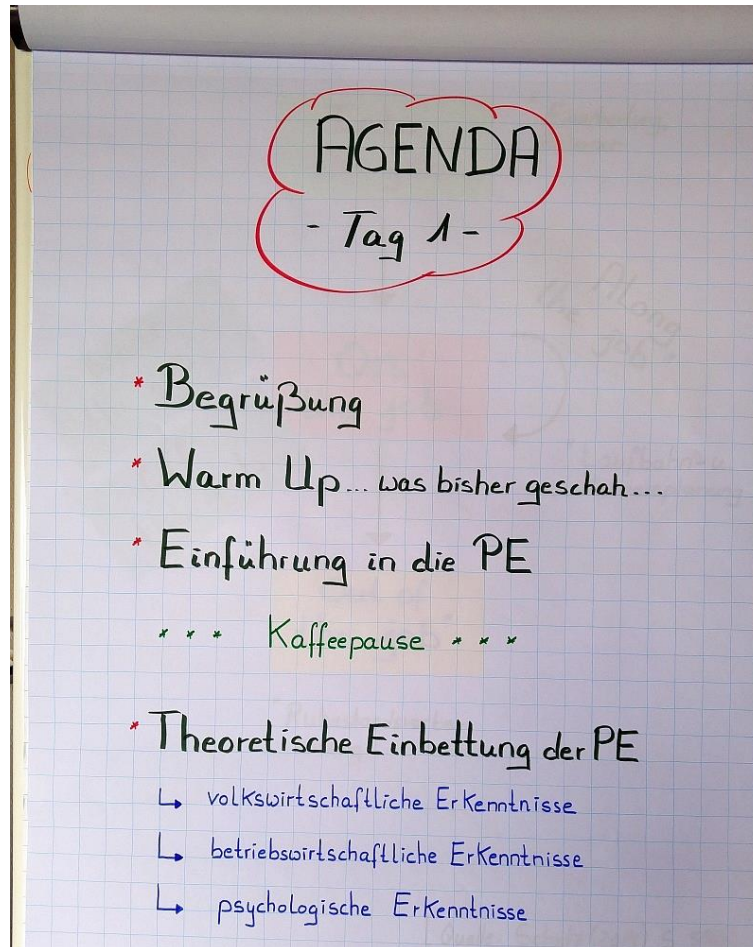 AGENDA
- Tag 1 -
* Begrüßung
* Warm Up... was bisher geschah...
* Einführung in die PE
* * * Kaffeepause * * *
* Theoretische Einbettung der PE
↳ volkswirtschaftliche Erkenntnisse
↳ betriebswirtschaftliche Erkenntnisse
↳ psychologische Erkenntnisse